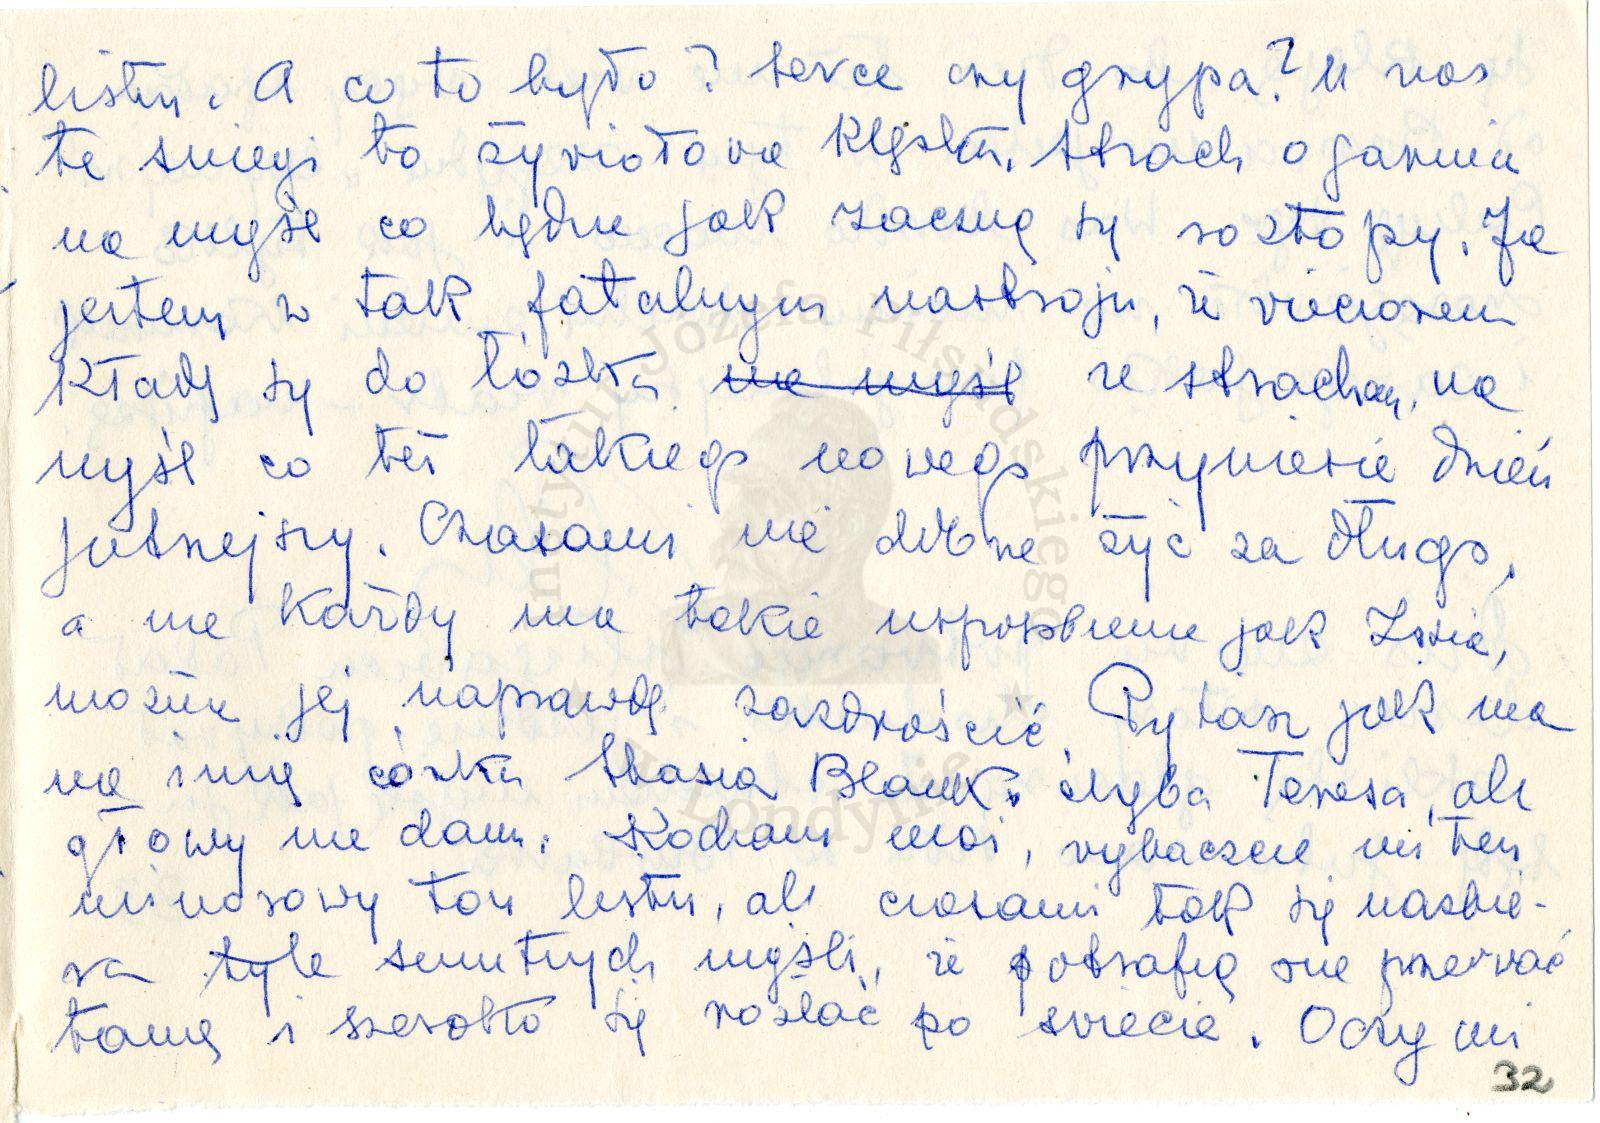 listu. A co to było? Serce czy grypa? U nas
te śniegi to żywiołowa klęska. Strach ogarnia
na myśl co będzie jak zaczną się roztopy. Ja
jestem w tak fatalnym nastroju, że wieczorem
kładę się do łóżka na myśl ze strachem, na
myśl co też takiego nowego przyniesie dzień
jutrzejszy. Czasami nie dobrze żyć za długo,
a nie każdy ma takie usposobienie jak Zosia,
można jej naprawdę zazdrościć. Pytasz jak ma
na imię córka Stasia Blank. Chyba Teresa, ale
głowy nie dam. Kochani moi, wybaczcie mi ten
minorowy ton listu, ale czasami tak się nazbie-
ra tyle smutnych myśli, że potrafią one przerwać
tamę i szeroko się rozlać po świecie. Oczy mi
32
Instytut Józefa Piłsudskiego
w Londynie